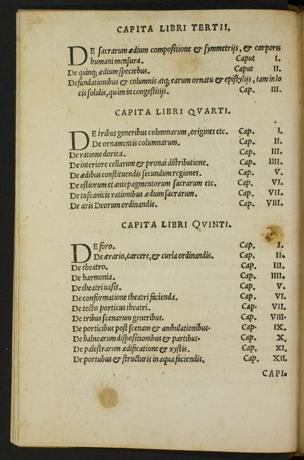 CAPITA LIBRI TERTII.
DE sacrarum ædium compositione & symmetrijs, & corporis
humani mensura. Caput I.
De quinq; ædium speciebus. Caput II.
De fundationibus & columnis atq; earum ornatu & epistylijs, tam in lo
cis solidis, quàm in congestitijs. Cap. III.
CAPITA LIBRI QVARTI.
DE tribus generibus columnarum, origines etc. Cap. I.
De ornamentis columnarum. Cap. II.
De ratione dorica. Cap. III.
De interiore cellarum & pronai distributione. Cap. IIII.
De ædibus constituendis secundum regiones. Cap. V.
De ostiorum et antepagmentorum sacrarum etc. Cap. VI.
De tuscanicis rationibus ædium sacrarum. Cap. VII.
De aris Deorum ordinandis. Cap. VIII.
CAPITA LIBRI QVINTI.
DE foro. Cap. I.
De ærario, carcere, & curia ordinandis. Cap. II.
De theatro. Cap. III.
De harmonia. Cap. IIII.
De theatri vasis. Cap. V.
De conformatione theatri facienda. Cap. VI.
De tecto porticus theatri. Cap. VII.
De tribus scenarum generibus. Cap. VIII.
De porticibus post scenam & ambulationibus. Cap. IX.
De balnearum dispositionibus & partibus. Cap. X.
De palestrarum ædificatione & xystis. Cap. XI.
De portubus & structuris in aqua faciendis. Cap. XII.
CAPI-